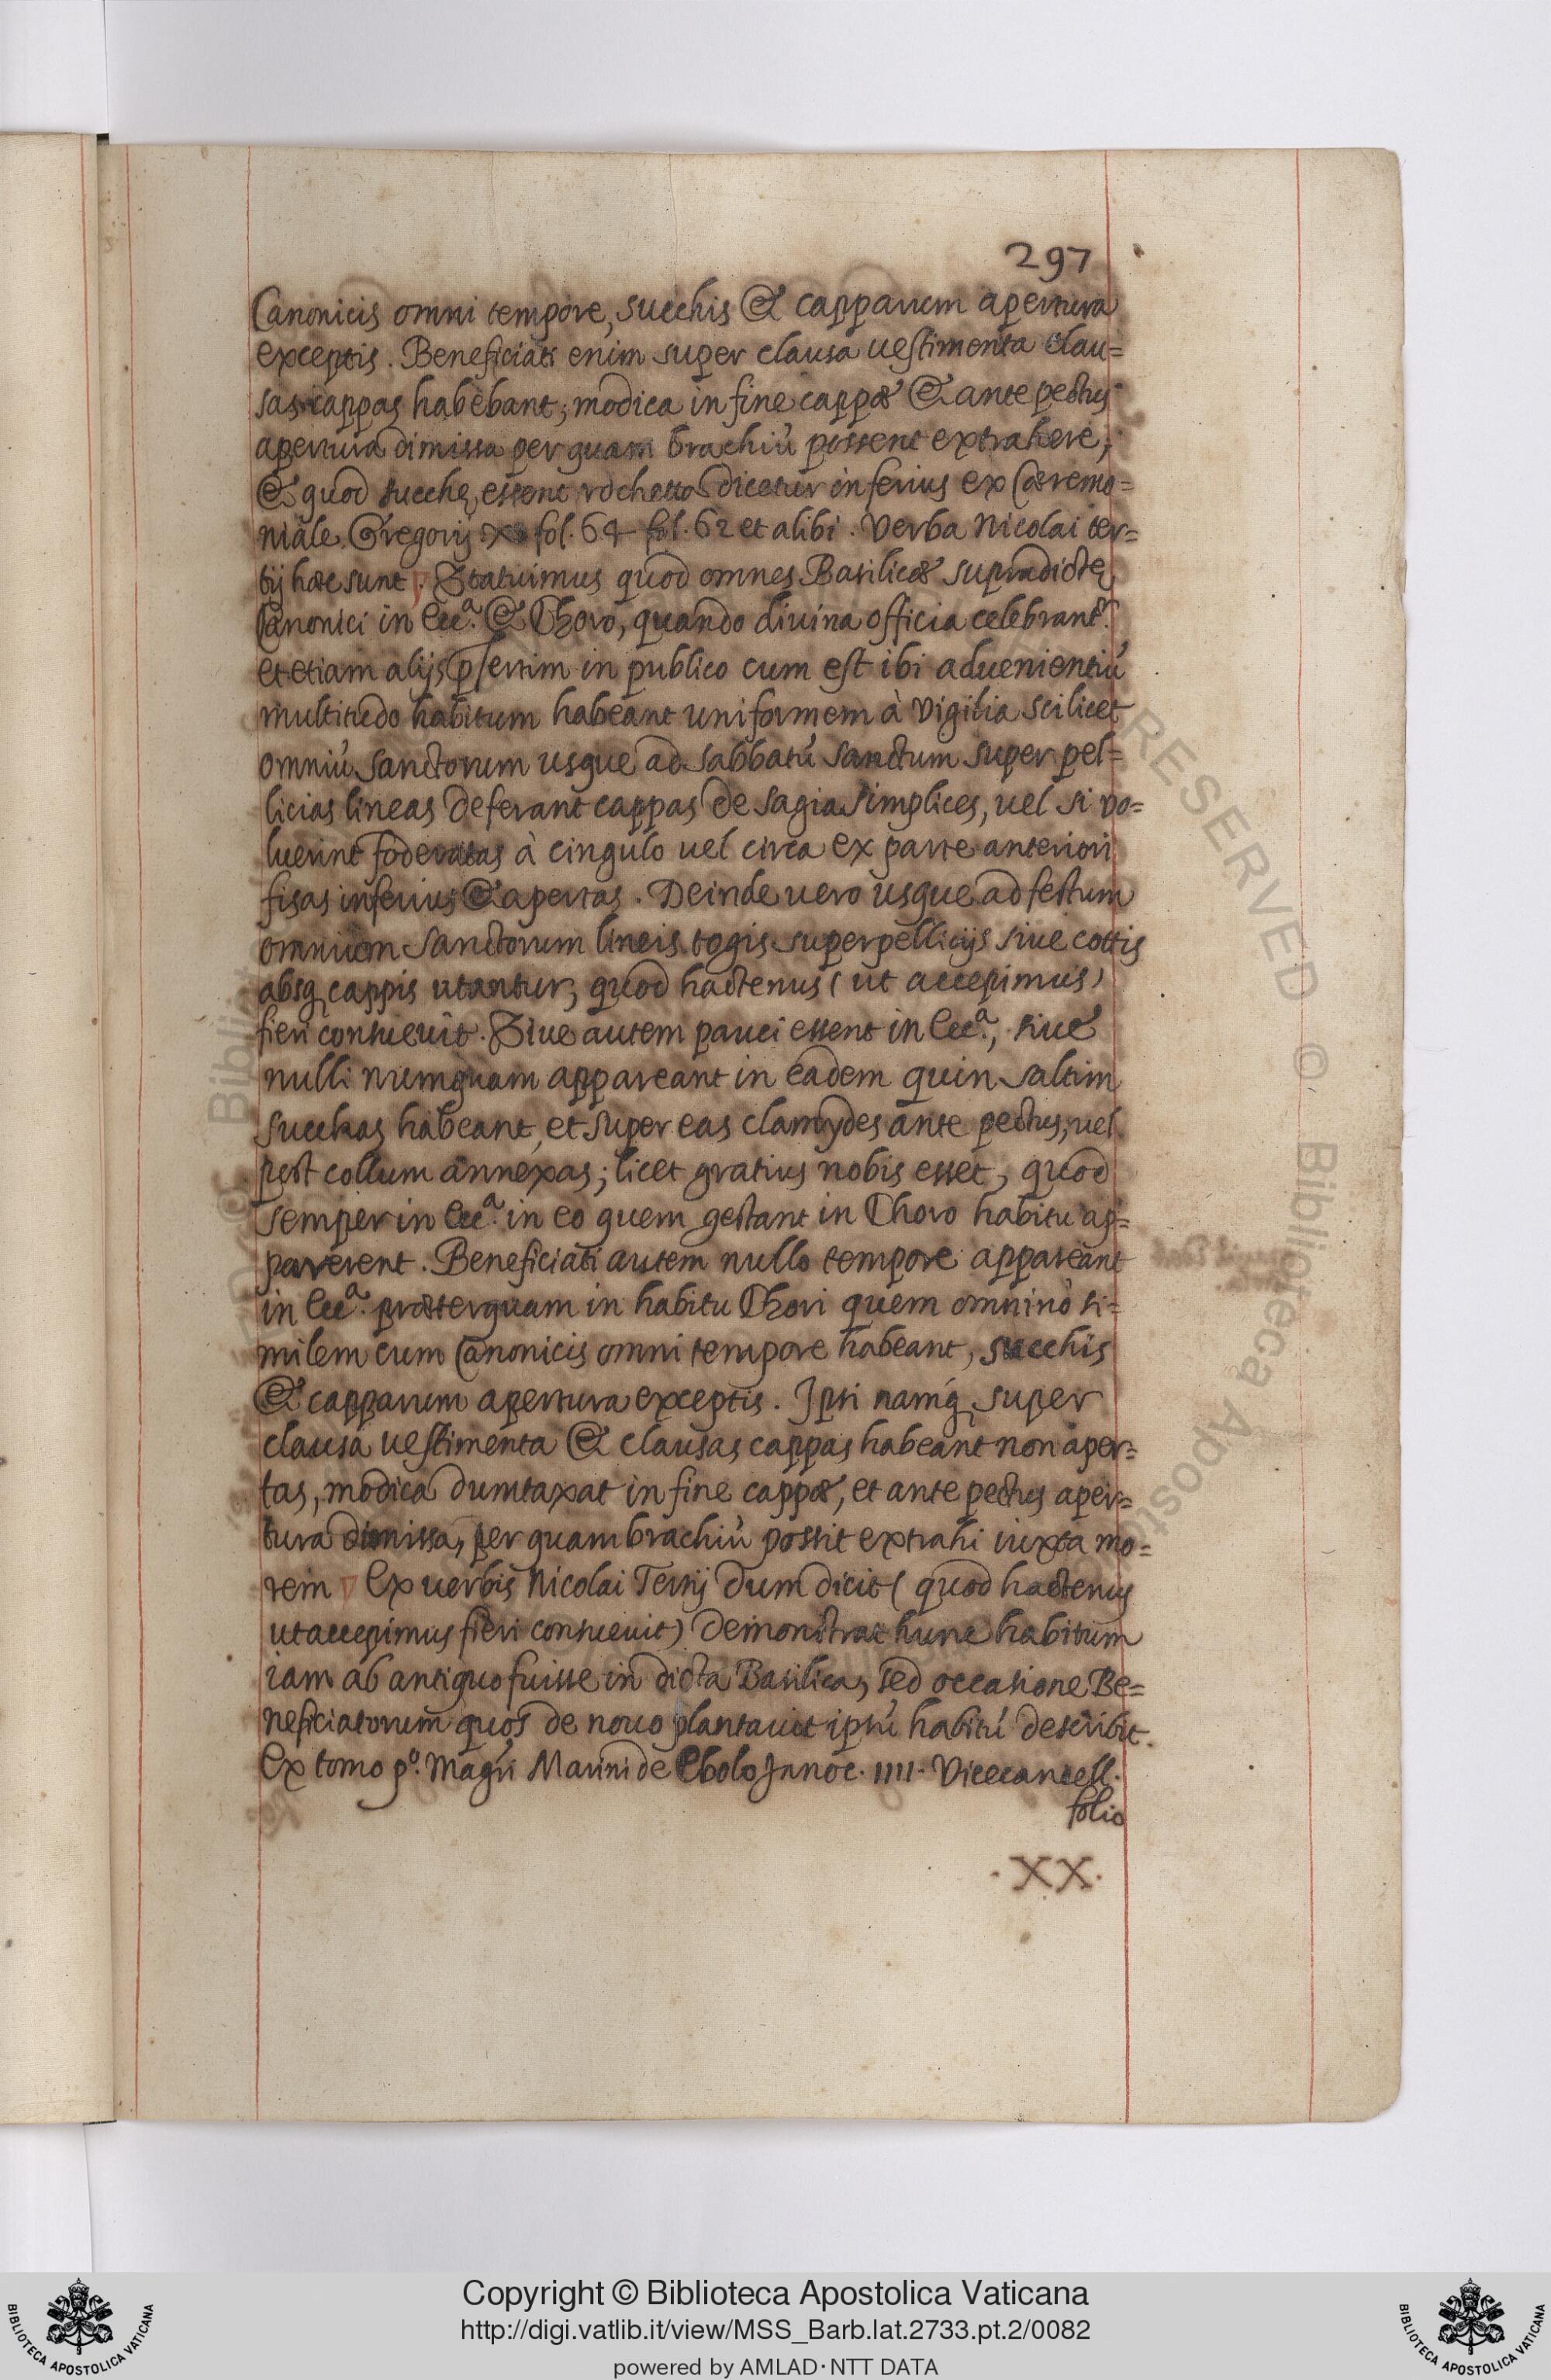 297
Canonicis omni tempore, succhis & capparum apertura
exceptis. Beneficiati enim super clausa uestimenta clau=
sas cappas habebant; modica in fine cappæ & ante pectus
apertura dimissa per quam brachiù possent extrahere,
& quod succhę essent rochetta dicetur inferius ex Cæremo=
niale Gregorij X fol. 64 fol. 62 et alibi. Verba Nicolai ter=
tij hæc sunt. Statuimus quod omnes Basilicæ supradictę
Canonici in Ecc.ᵃ & Choro, quando diuina officia celebrant.ʳ
et etiam alijs p̱sertim in publico cum est ibi aduenientiù
multitudo habitum habeant uniformem à Vigilia scilicet
omniù Sanctorum usque ad Sabbatù Sanctum super pel=
licias lineas deferant cappas de sagia simplices, uel si vo=
luerint foderatas à cingulo uel circa ex parte anteriori
fisas inferius & apertas. Deinde uero usque ad festum
omnium Sanctorum lineis togis superpellicijs siue cottis
absq cappis utantur, quod hactenus (ut accepimus)
fieri consueuit. Siue autem pauci essent in Ecc.ᵃ, siue
nulli numquam appareant in eadem quin saltim
succhas habeant, et super eas clamydes ante pectus, uel
post collum annexas; licet gratius nobis esset, quod
semper in Ecc.ᵃ in eo quem gestant in Choro habitu ap=
parerent. Beneficiati autem nullo tempore appareant
in Ecc.ᵃ præterquam in habitu Chori quem omninò si=
milem cum Canonicis omni tempore habeant, succhis
& capparum apertura exceptis. Ipsi namq́ super
clausa uestimenta & clausas cappas habeant non aper=
tas, modica dumtaxat in fine cappæ, et ante pectus aper=
tura dimissa, per quam brachiù possit extrahi iuxta mo=
rem Ex uerbis Nicolai Tertij dum dicit (quod hactenus
ut accepimus fieri consueuit) demonstrat hunc habitum
iam ab antiquo fuisse in dicta Basilica, sed occasione Be=
neficiatorum quos de nouo plantauit ipsù habitù describit.
Ex tomo pº. Magři Marini de Ebolo Innoc. IIII. Vicecancell.
folio
.XX.
Copyright © Biblioteca Apostolica Vaticana
http://digi.vatlib.it/view/MSS_Barb.lat.2733.pt.2/0082
powered by AMLAD·NTT DATA
BIBLIOTECA APOSTOLICA VATICANA
BIBLIOTECA APOSTOLICA VATICANA